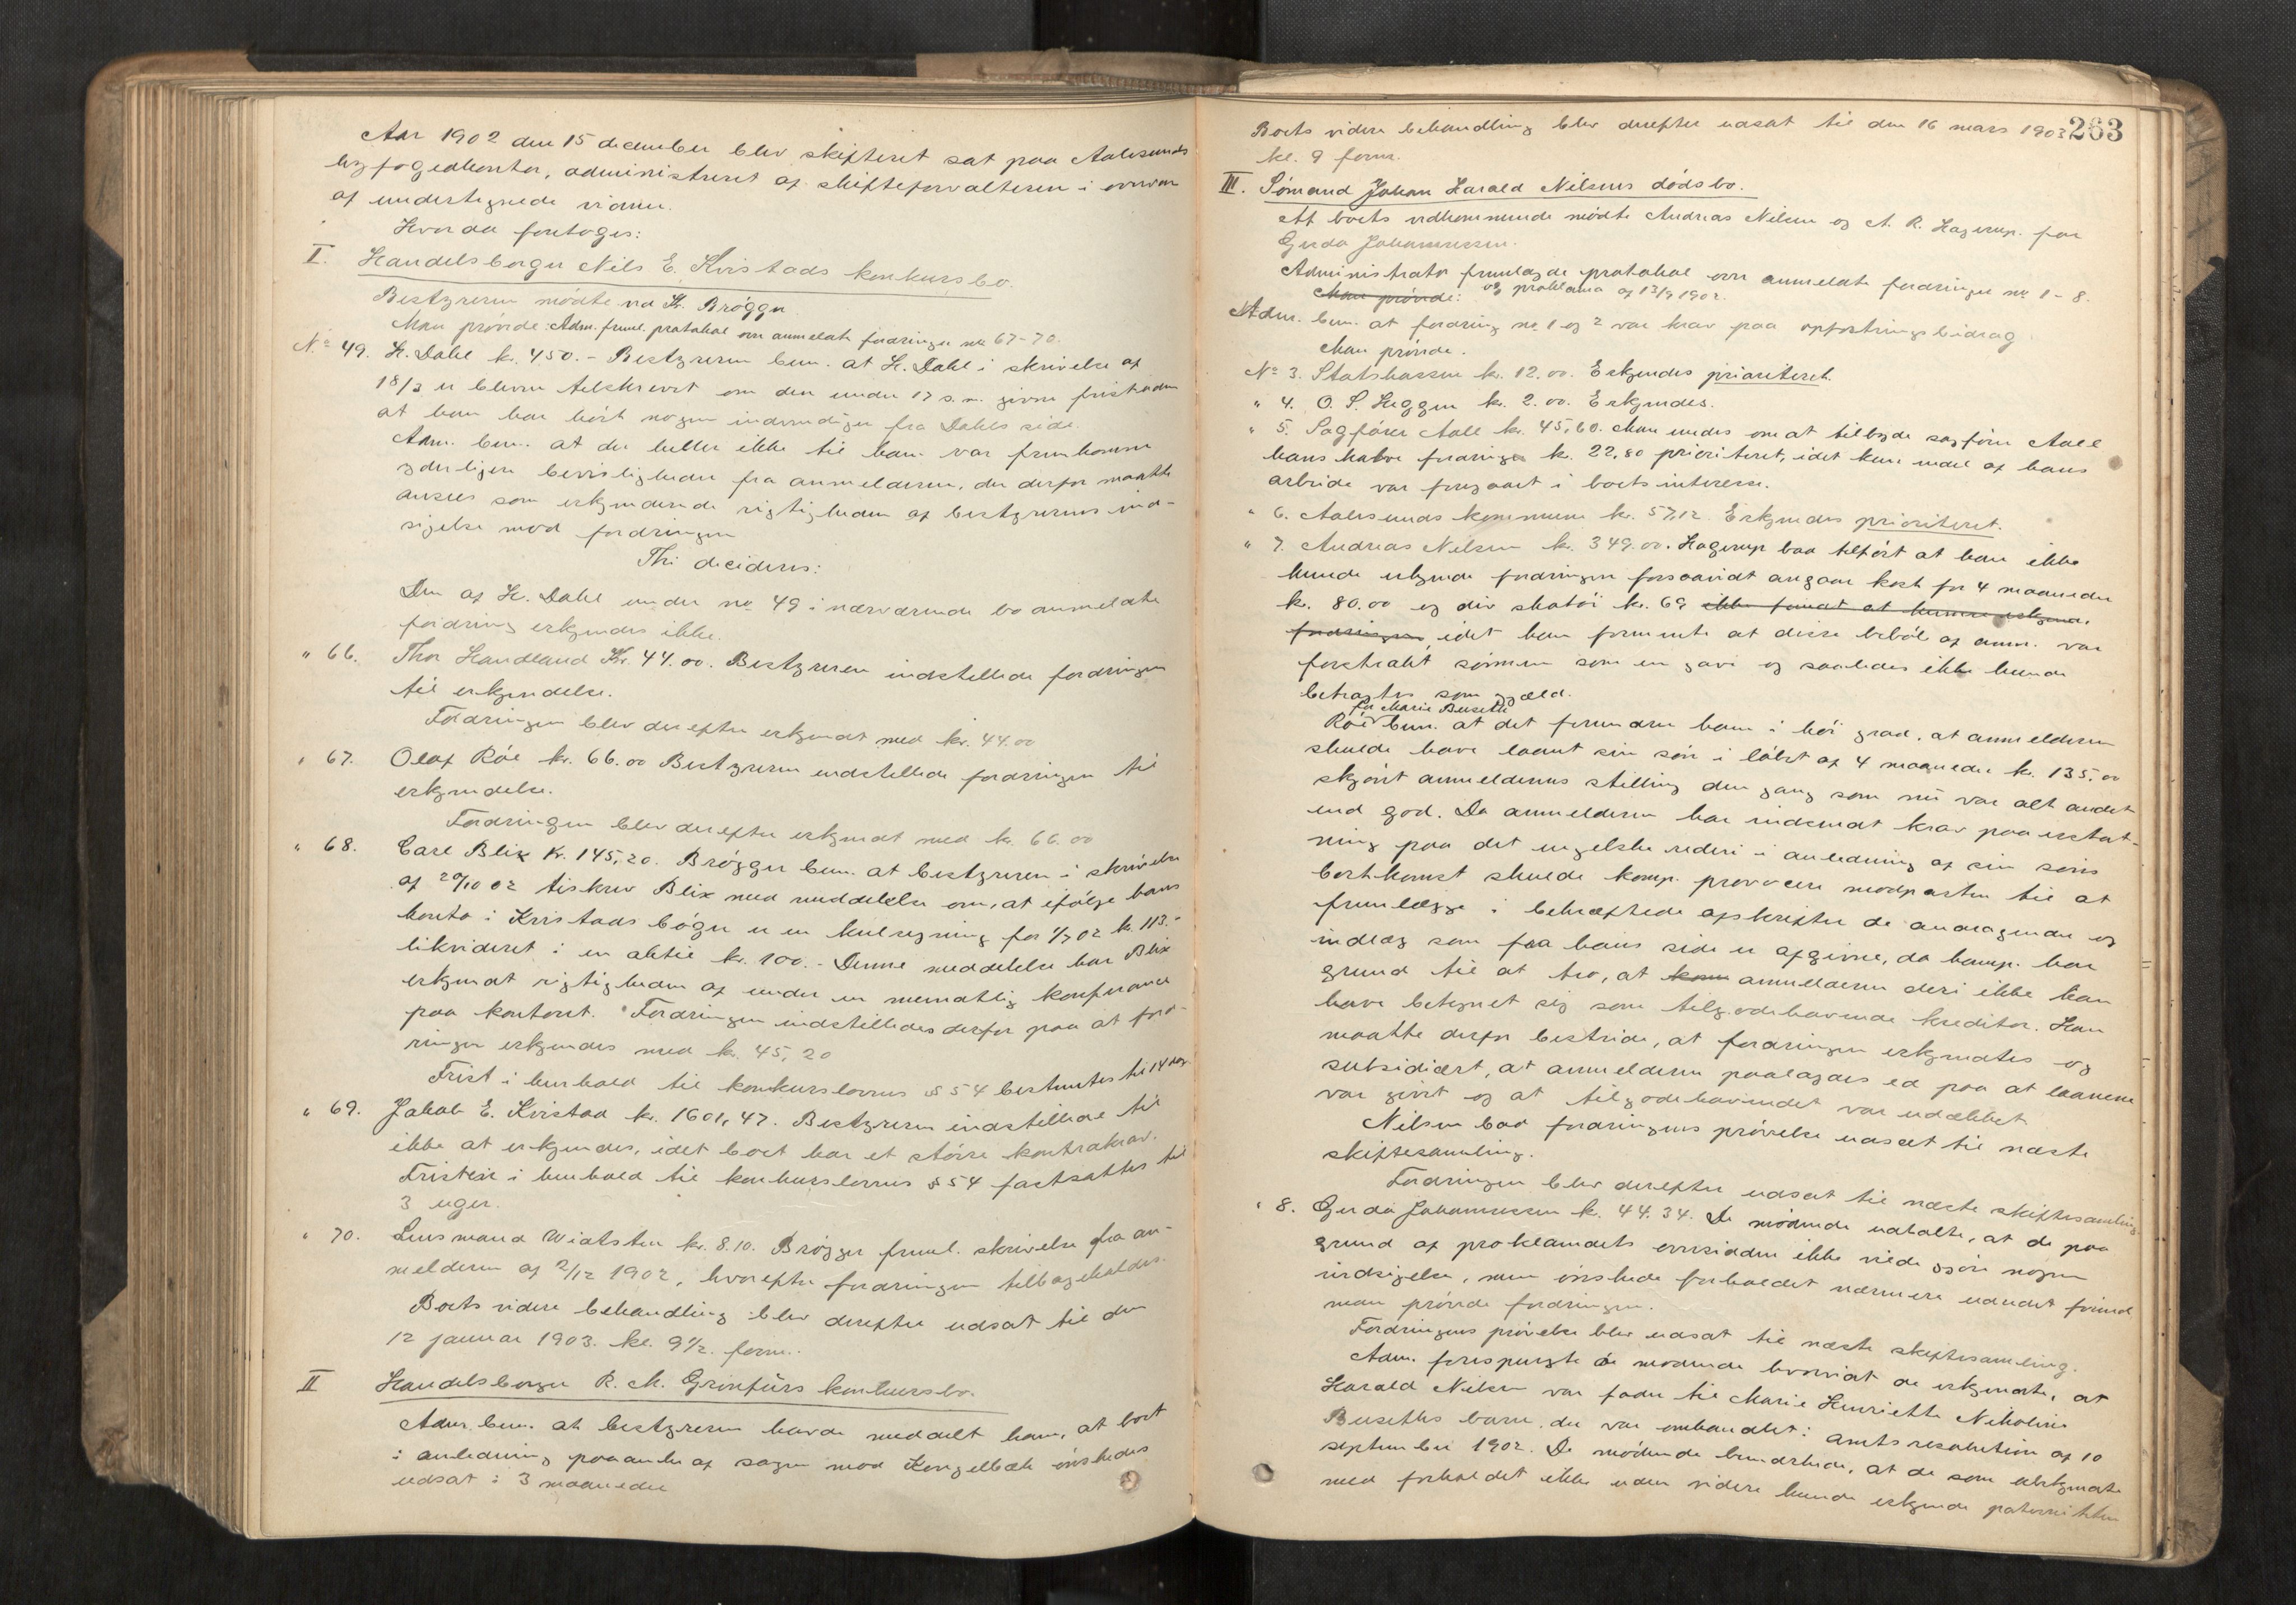 Aar 1902 den 15 december blev skifteret sat paa Aalesunds
byfogedkontor, administreret af skifteforvalteren i overvær
af undertegnede vidner.
Hvorda foretoges:
I. Handelsborger Nils E. Kvistads konkursbo.
Bestyreren mødte ved Kr. Brøgger
Man prøvde: Adm. freml. protokol over anmeldte fordringer no 67-70.
No 49. H. Dahl kr. 450.- Bestyreren bem. at H. Dahl i skrivelse af
18/3 er bleven tilskrevet om den under 17 s. m. givne frist uden
at han har hørt nogen indvendiger fra Dahls side.
Adm. bem. at der heller ikke til ham var fremkommen
yderligere bevisligheder fra anmelderen, der derfor maatte
ansees som erkjendende rigtigheden af bestyrerens ind-
sigelse mod fordringen
Thi decideres:
Den af H. Dahl under no 49 i nærværende bo anmeldte
fordring erkjendes ikke.
" 66. Thor Handland Kr. 44.00. Bestyreren indstillede fordringen
til erkjendelse.
Fordringen blev derefter erkjendt med kr. 44.00
" 67. Olaf Róe kr. 66.00 Bestyreren indstillede fordringen til
erkjendelse.
Fordringen blev derefter erkjendt med kr. 66.00
" 68. Carl Blix Kr. 145,20. Brøgger bem. at bestyreren i skrivelse
af 29/10 02 tilskrev Blix med meddelelse om, at ifølge hans
konto i Kvistads bøger er en kulregning for 1/7 02 kr. 113.-
likvideret i en aktie kr. 100.- Denne meddelelse har Blix
erkjendt rigtigheden af under en mundtlig konferance
paa kontoret. Fordringen indstilledes derfor paa at ford-
ringen erkjendes med kr. 45,20
Frist i henhold til konkurslovens § 54 bestemtes til 14 dag
" 69. Jakob E. Kvistad kr. 1601,47. Bestyreren indstillede til
ikke at erkjendes, idet boet har et større kontrakrav.
Fristen i henhold til konkurslovens § 54 fastsattes til
3 uger.
" 70. Lensmand Wiatsten kr. 8.10. Brøgger freml. skrivelse fra an-
melderen af 2/12 1902, hvorefter fordringen tilbageholdes.
Boets videre behandling blev derefter udsat til den
12 januar 1903. kl. 9 1/2. form.
II Handelsborger R. M. Grønfürs konkursbo.
Adm. bem. at bestyreren havde meddelt ham, at boet
i anledning paaanke af sagen mod Kongelbæk ønskedes
udsat i 3 maaneder
263
Boets videre behandling blev derefter udsat til den 16 mars 1903
kl. 9 form.
III. Sømand Johan Harald Nilsens dødsbo.
Af boets vedkommende mødte Andreas Nilsen og A. R. Hagerup. for
Gerda Johannessen.
Administrator fremlagde protokol over anmeldte fordringer no 1-8
Man prøvde: og proklama af 13/9 1902.
Adm. bem. at fordring no 1 og 2 var krav paa opfostringsbidrag
Man prøvde.
No 3. Statskassen kr. 12.00. Erkjendes prioriteret.
" 4. O. S. Heggen kr. 2.00. Erkjendes.
" 5. Sagfører Aall kr. 45,60. Man enedes om at tilbyde sagfører Aall
hans halve fordringer kr. 22,80 prioriteret, idet kun endel af hans
arbeide var foregaaet i boets interesse.
" 6. Aalesunds kommune kr. 57,12. Erkjendes prioriteret.
" 7. Andreas Nilsen kr. 349.00. Hagerup bad tilført at han ikke
kunde erkjende fordringen forsaavidt angaar kost for 4 maaneder
kr. 80.00 og div skotøi kr. 69 ikke fundet at kunne erkjende
fordringen, idet han formente at disse beløb af anm. var
forstrakt sønnen som en gave og saaledes ikke kunde
betragtes som gjæld.
for Marie Buseth
Róe bem. at det forundrer ham i høi grad, at anmelderen
skulde have laant sin søn i løbet af 4 maaneder kr. 135.00
skjønt anmelderens stilling den gang som nu var alt andet
end god. Da anmelderen har indsendt krav paa erstat-
ning paa det engelske rederi i anledning af sin søns
bortkomst skulde komp. provocere modparten til at
fremlægge i bekræftede afskrifter de andragender og
indlæg som fra hans side er afgivne, da komp. har
grund til at tro, at kom anmelderen deri ikke kan
have betegnet sig som tilgodehavende kreditor. Han
maatte derfor bestride, at fordringen erkjendtes og
subsidiært, at anmelderen paalagdes ed paa at laanene
var givet og at tilgodehavendet var udækket
Nilsen bad fordringens prøvelse udsat til næste
skiftesamling.
Fordringen blev derefter udsat til næste skiftesamling
" 8. Gerda Johannessen kr. 44.34. De mødende udtalte, at de paa
grund af proklamaets oversidden ikke vilde gjøre nogen
indsigelse, men ønskede forholdet nærmere undet forind
man prøvde fordringen.
Fordringens prøvelse blev udsat til næste skiftesamling.
Adm. forespurgte de mødende hvorvidt de erkjendte, at
Harald Nilsen var fader til Marie Henriette Nikoline
Buseths barn, der var omhandlet i amtsresolution af 10
september 1902. De mødende bemærkede, at de som ubekjendte
med forholdet ikke uden videre kunde erkjende paterniteten